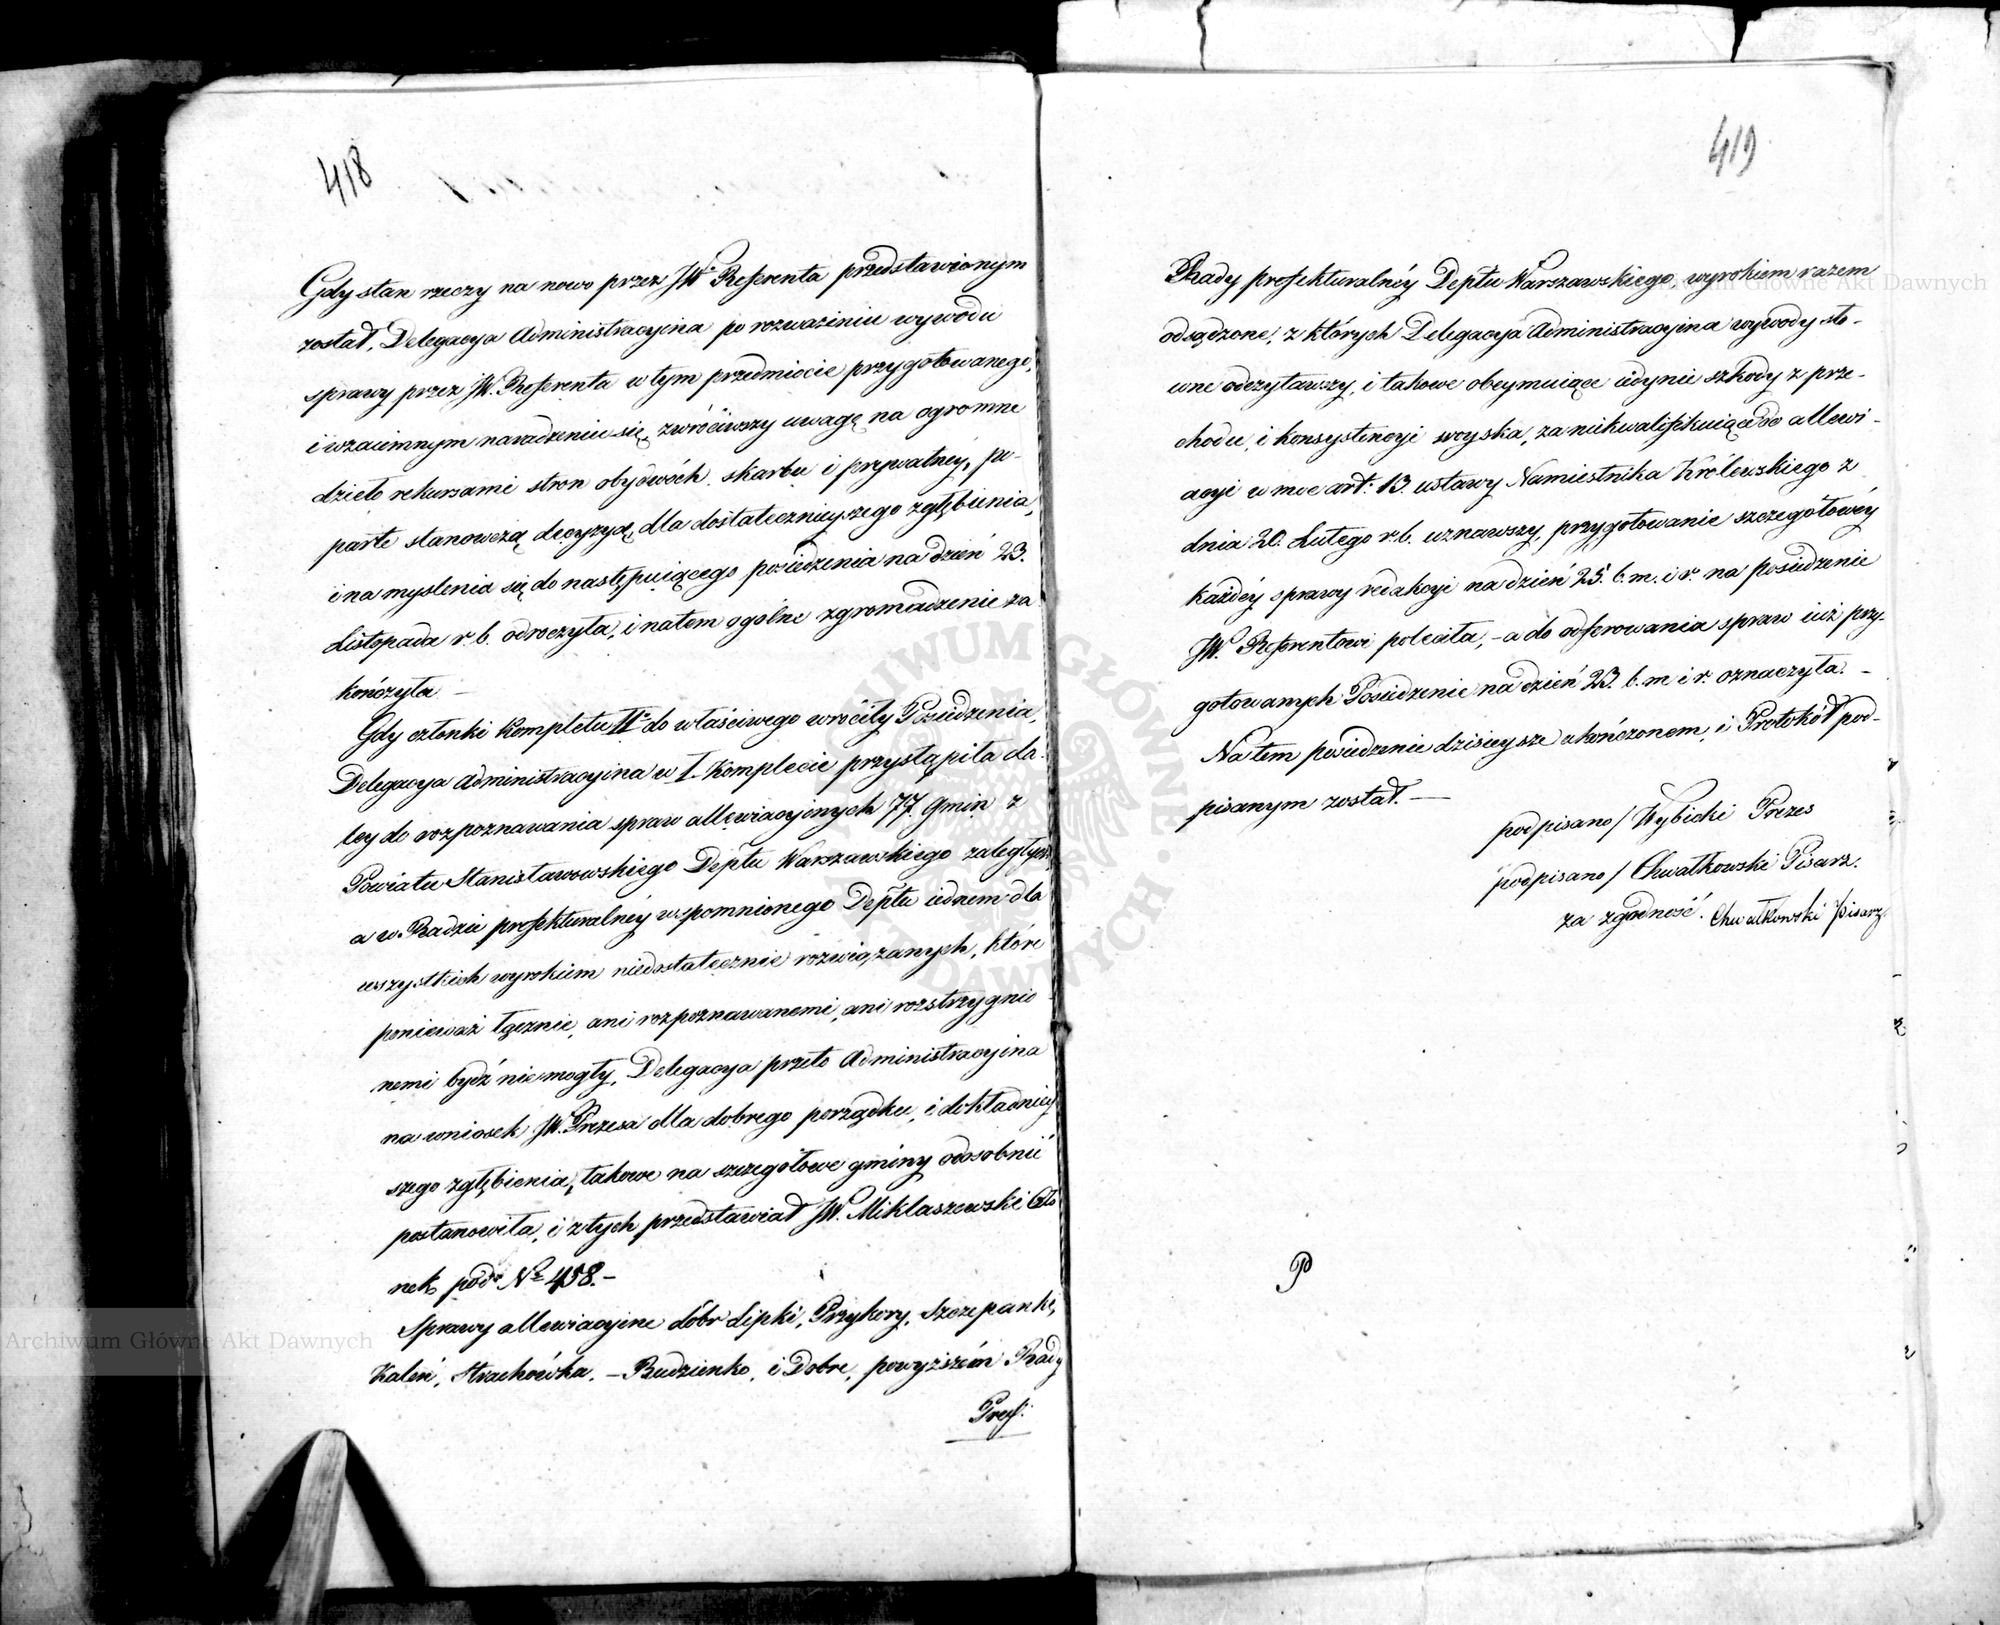 418
Gdy stan rzeczy na nowo przez JW° Referenta przedstawionym
został, Delegacya Administracyina po rozważeniu wywodu
sprawy przez JW. Referenta w tym przedmiocie przygotowanego,
i wzaiemnym naradzeniu się, zwróciwszy uwagę na ogromne
dzieło rekursami stron obydwóch skarbu i prywatnéy, po-
parte stanowczą decyzyą, dla dostatecznieyszego zgłębienia,
i namyslenia się do następuiącego posiedzenia na dzień 23.
Listopada r. b. odroczyła, i na tem ogólne zgromadzenie za
kończyła –
Gdy członki Kompletu II° do właściwego wróciły Posiedzenia,
Delegacya Administracyina w I. Komplecie przystąpiła da-
ley do rozpoznawania spraw allewiacyinych 77. Gmin z
Powiatu Stanisławowskiego Deptu Warszawskiego zaległych
a w Radzie prefekturalnéy wspomnionego Deptu iednem dla
wszystkich wyrokiem niedostatecznie rozwiązanych, które
ponieważ łącznie, ani rozpoznawanemi, ani rozstrzygnio
nemi bydź nie mogły, Delegacya przeto Administracyina
na wniosek JW. Prezesa dla dobrego porządku, i dokładniey
szego zgłębienia, takowe na szczegółowe gminy odosobnić
postanowiła, i z tych przedstawiał JW. Miklaszewski Czło
nek pod N° 458. –
Sprawy allewiacyine dóbr Lipki, Przykory, Szczepanki,
Kaleń, Strachówka, – Rudzienko, i Dobre, powyższém Rady
Pref:
419
Rady prefekturalnéy Deptu Warszawskiego, wyrokiem razem
odsądzone, z których Delegacya Administracyina wywody sło-
wne odczytawszy, i takowe obeymuiące iedynie szkody z prze-
chodu, i konsystencyi woyska, za niekwalifikuiące do allewi-
acyi w moc art: 13. ustawy Namiestnika Królewskiego z
dnia 20. Lutego r. b. uznawszy, przygotowanie szczegółowéy
każdéy sprawy redakcyi na dzień 25. b. m. i r. na posiedzenie
JW. Referentowi poleciła, – a do odferowania spraw iuż przy-
gotowanych Posiedzenie na dzień 23. b. m i r. oznaczyła. –
Na tem posiedzenie dzisieysze ukończonem, i Protokół pod-
pisanym został. —
podpisano/ Wybicki Prezes
podpisano/ Chwałkowski Pisarz.
za zgodność. Chwałkowski Pisarz
P
Archiwum Główne Akt Dawnych
Archiwum Główne Akt Dawnych
ARCHIWUM GŁÓWNE AKT DAWNYCH